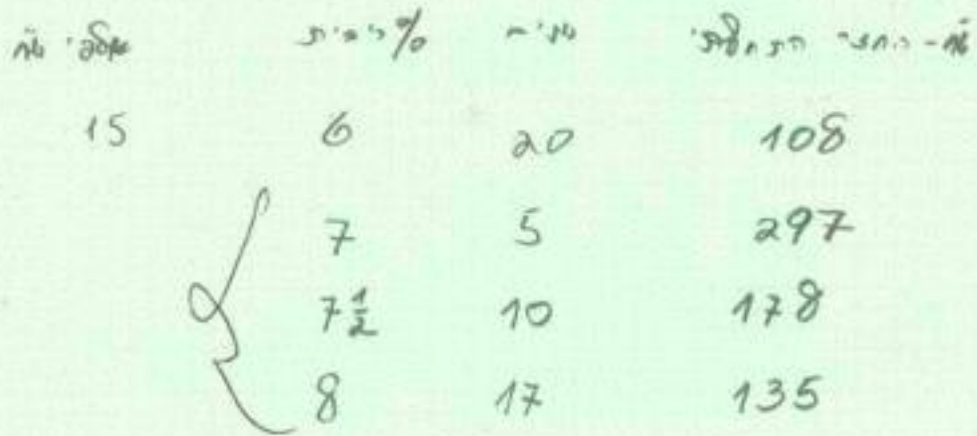 החזר התחלתי שנים % ריבית אלפי
108 20 6 15
297 5 7
178 10 7½
135 17 8